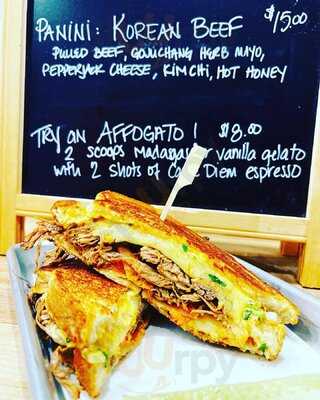 PANINI: KOREAN BEEF $15.00
PULLED BEEF, GOUCHANG HERB MAYO,
PEPPERJACK CHEESE, KIMCHI, HOT HONEY
TRY an AFFOGATO! $8.00
2 scoops Madagascar vanilla gelato
with 2 shots of Diem espresso
urpy